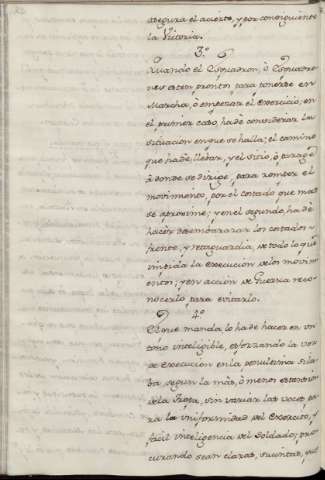 asegura el acierto, y por consiguiente
la Victoria.
3.º
Quando el Esquadron, ò Esquadro-
nes esten prontos para ponerse en
Marcha, ò empezar el Exercicio, en
el primer caso, hade considerar la
situacion en que se halla; el camino
que hade llebar, y el sitio, ò parage
à donde se dirige, para romper el
movimiento, por el costado que mas
se aproxime; y en el segundo, hade
hacer desembarazar los costados
frente, y retaguardia, de todo lo que
impida la execucion de los movim-
entos; y en accion de Guerra reco-
nocerlo para evitarlo.
4.º
El que manda lo ha de hacer en un
tono inteligible, esforzando la voz
de execucion en la penultima sila-
ba segun la mas, ò menos extension
de la Tropa, sin variar las voces pa-
ra la uniformidad del Exercito, y
facil inteligencia del Soldado; pro-
curando sean claras, sucintas, que